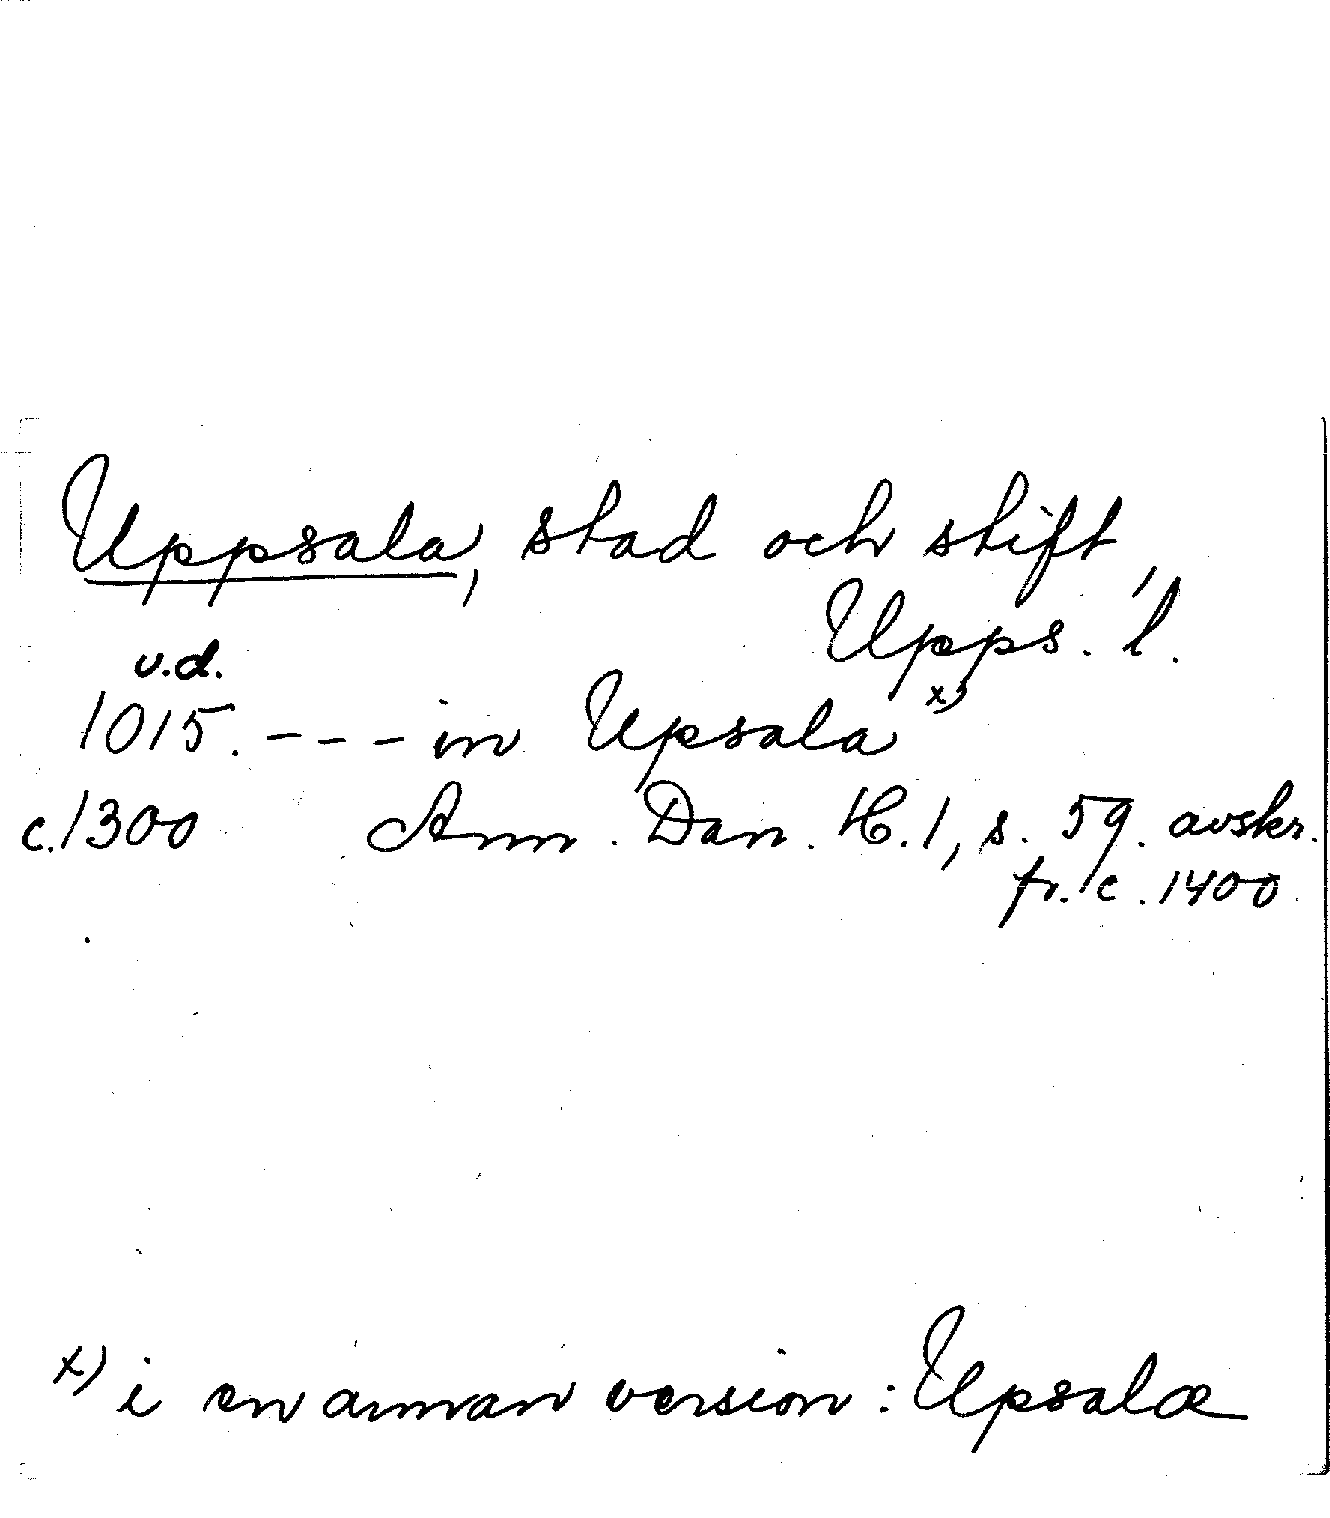 Uppsala, stad och stift,
Upps. l.
u.d.
1015. - - - in Upsala x)
c. 1300 Ann. Dan. H. 1, s. 59. avskr.
fr. c. 1400.
x) i en annan version: Upsalæ